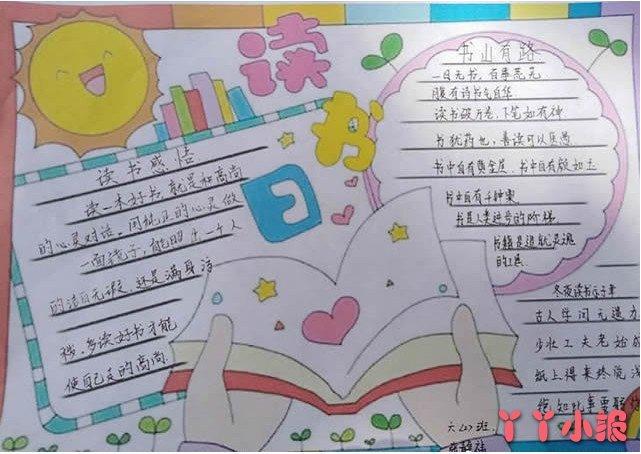 读书日
读书感悟
读一本好书，就是和高尚
的心灵对话。用纯正的心灵做
一面镜子，能照出一个人
的洁白无瑕，还是满身污
秽。多读好书才能
使自己变的高尚
书山有路
一日无书，百事荒芜
腹有诗书气自华
读书破万卷，下笔如有神
书犹药也，善读可以医愚
书中自有黄金屋，书中自有颜如玉
书中自有千钟粟
书是人类进步的阶梯
书籍是造就灵魂
的工具
冬夜读书示子聿
古人学问无遗力
少壮工夫老始成
纸上得来终觉浅
绝知此事要躬行
六(2)班
丫丫小报